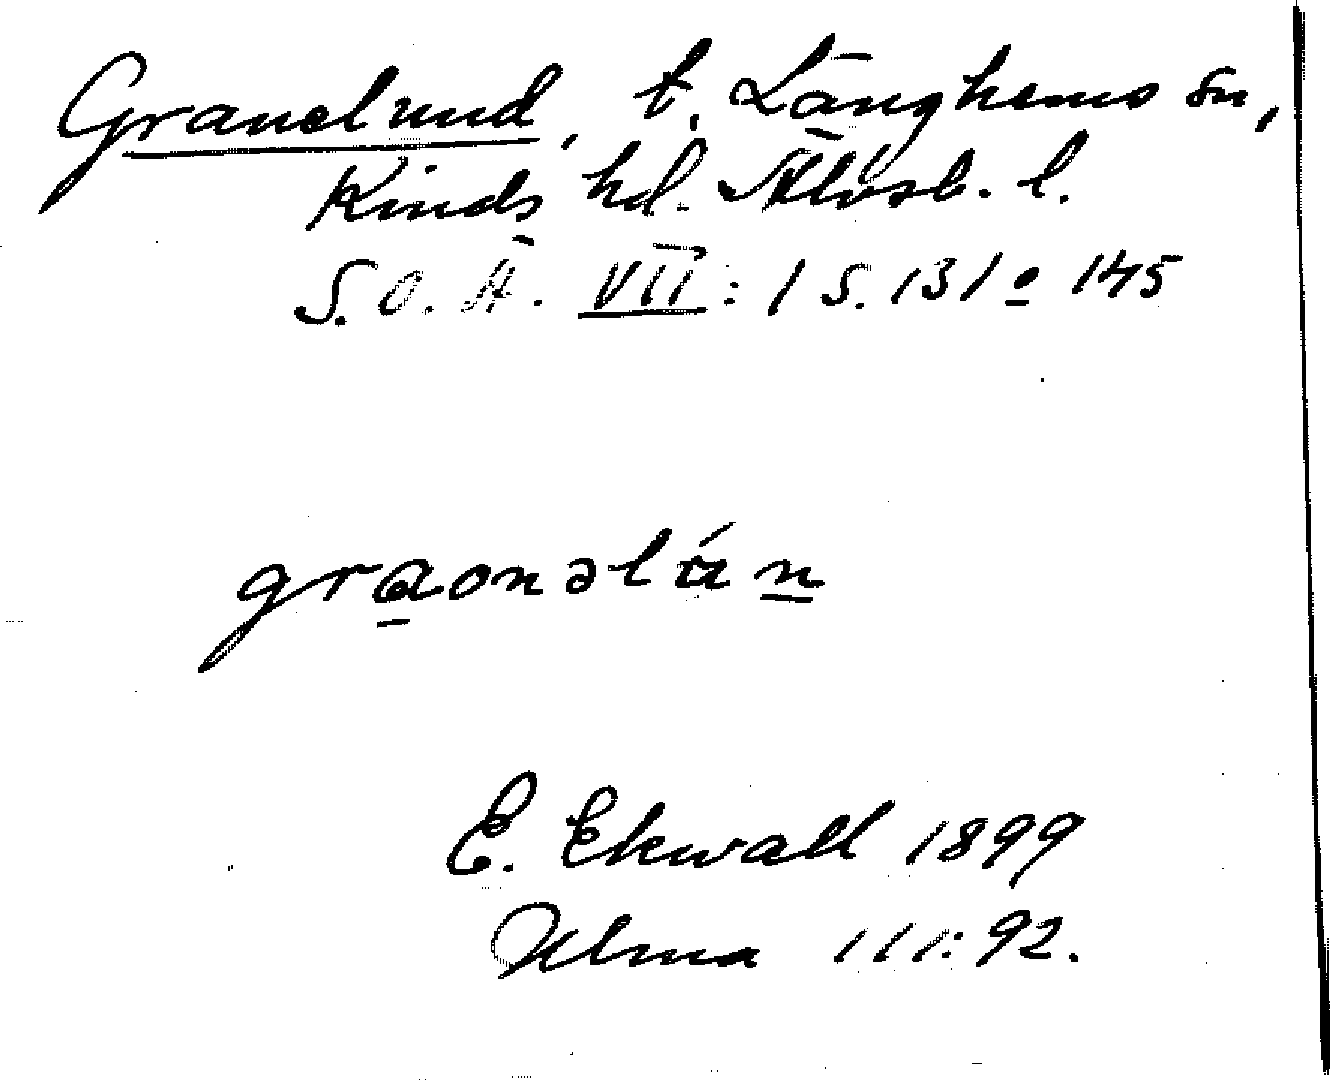 Granelund, t. Länghems sn,
Kinds hd. Älvsb. l.
S.O.Ä. VII: 1 s. 131 o 145
graonəlún
E. Ekwall 1899
Ulma 111:92.